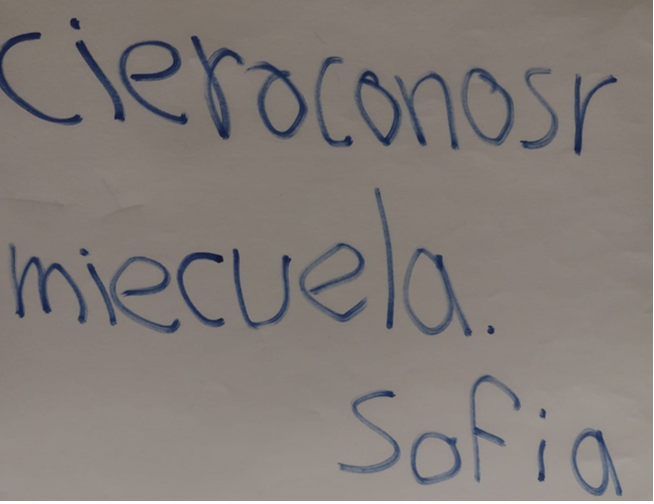 cieroconosr
miecuela.
Sofia